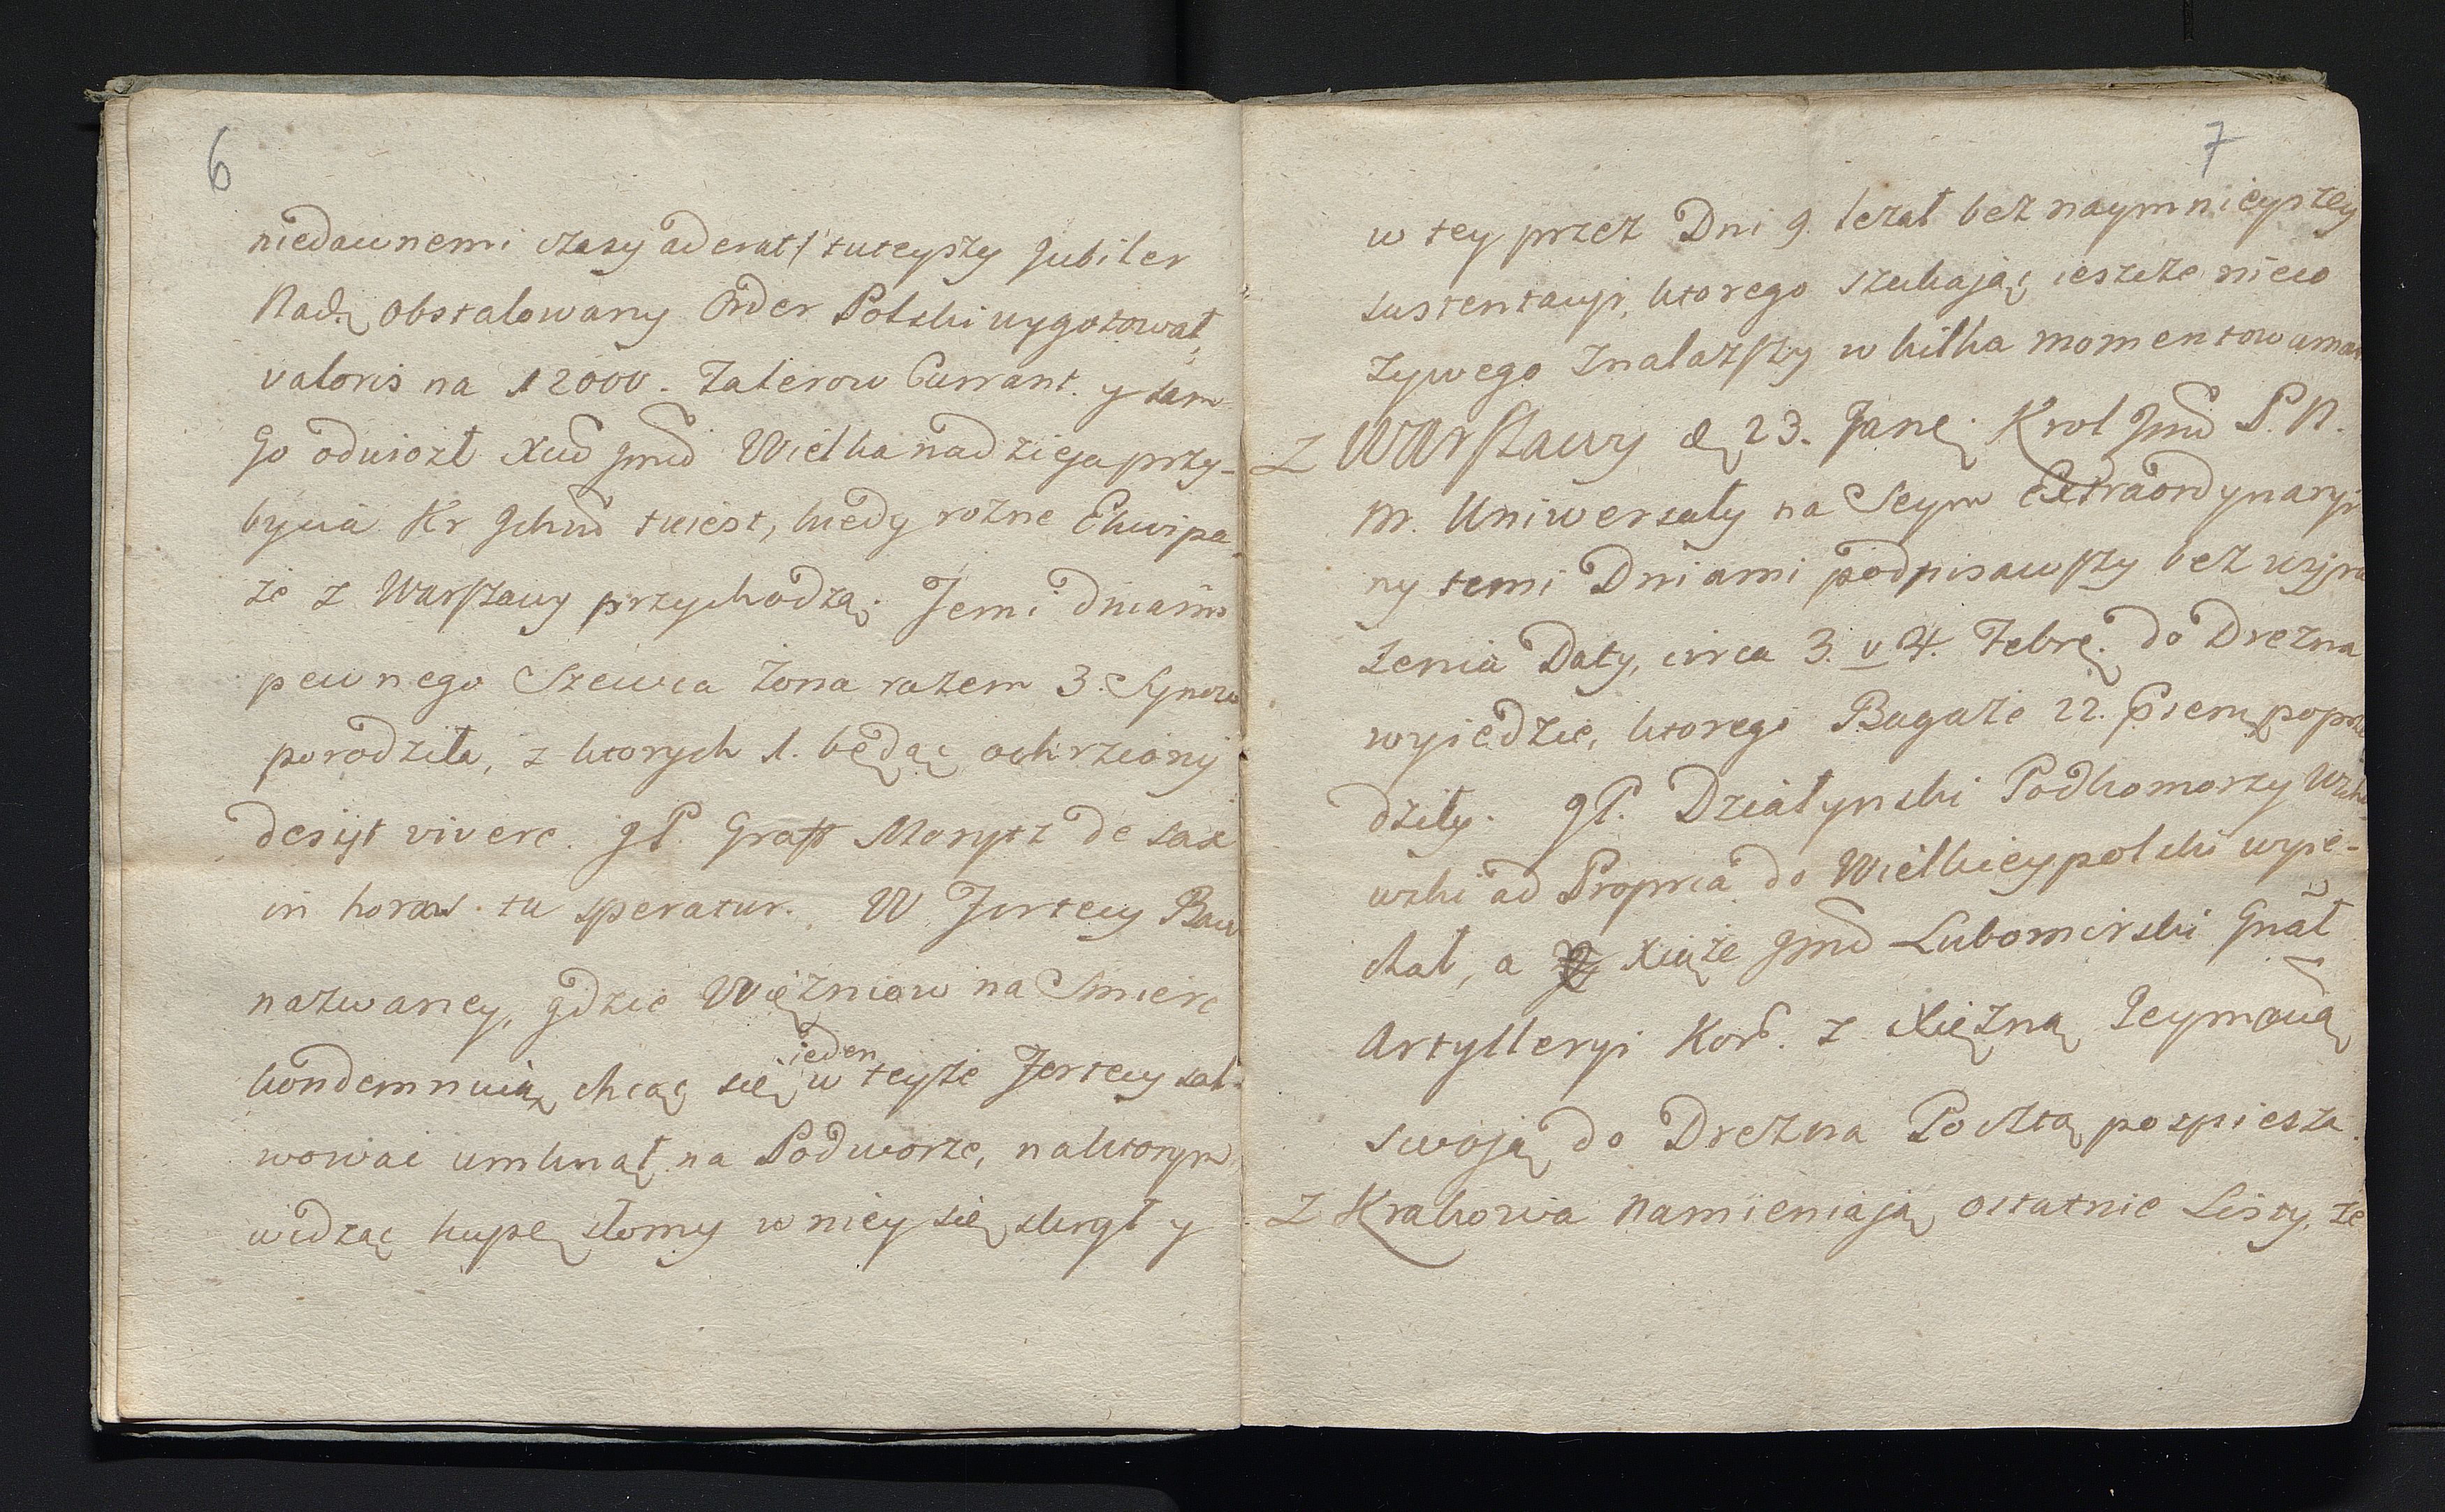 6
niedawnemi czasy aderat/ tuteyszy Jubiler
Nad. obstalowany Order Polski wygotował,
valoris na 12000. Talerow Currant. y sam
go odwiozł Xciu Jmci Wielka nadzieja przy-
bycia Kr Jchmć tu iest, kiedy rozne Ekwipa-
że z Warszawy przychodzą. Temi dniami
pewnego Szewca żona razem 3. Synow
porodziła, z ktorych 1. będąc ochrzcony
desijt vivere. JP. Graff Morytz de Sax
in horas tu speratur. W Fortecy Baw
nazwaney, gdzie Więzniow na Smierc
kondemnuią, chcąc się jeden w teyże Fortecy sal-
wować umknął na Podworze, na ktorym
widząc kupę słomy w niey się skrył y
7
w tey przez Dni 9. leżał bez naymnieyszey
sustentacyi, ktorego szukając ieszcze nieco
żywego znalazszy w kilka momentow umar
Z Warszawy d. 23. Jan. Krol Jmć P. N.
M. Uniwersały na Seym Extraordynaryi
ny temi Dniami podpisawszy bez wyra
żenia Daty, circa 3. v 4. Febr. do Drezna
wyiedzie, ktorego Bagaże 22. psem poprze
dziły. JP. Działynski Podkomorzy Wscho
wski ad Propria do Wielkieypolski wyie-
chał, a Xiąże Jmć Lubomirski Gnał
Artylleryi Kor. z Xiężną Jeymcią
swoją do Drezna Pocztą pospiesza.
Z Krakowa namieniają ostatnie Listy, że